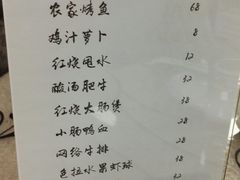 农家烤鱼 68
鸡汁萝卜 8
红烧甩水 12
酸汤肥牛 32
红烧大肠煲 38
小肠鸭血 28
网络牛排 28
色拉水果虾球 18
32